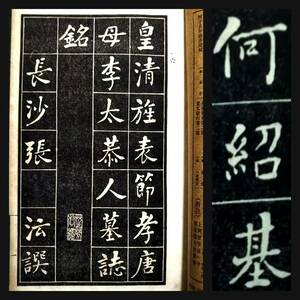 皇清旌表節孝唐
母李太恭人墓誌
銘
長沙張　沄譔
何紹基